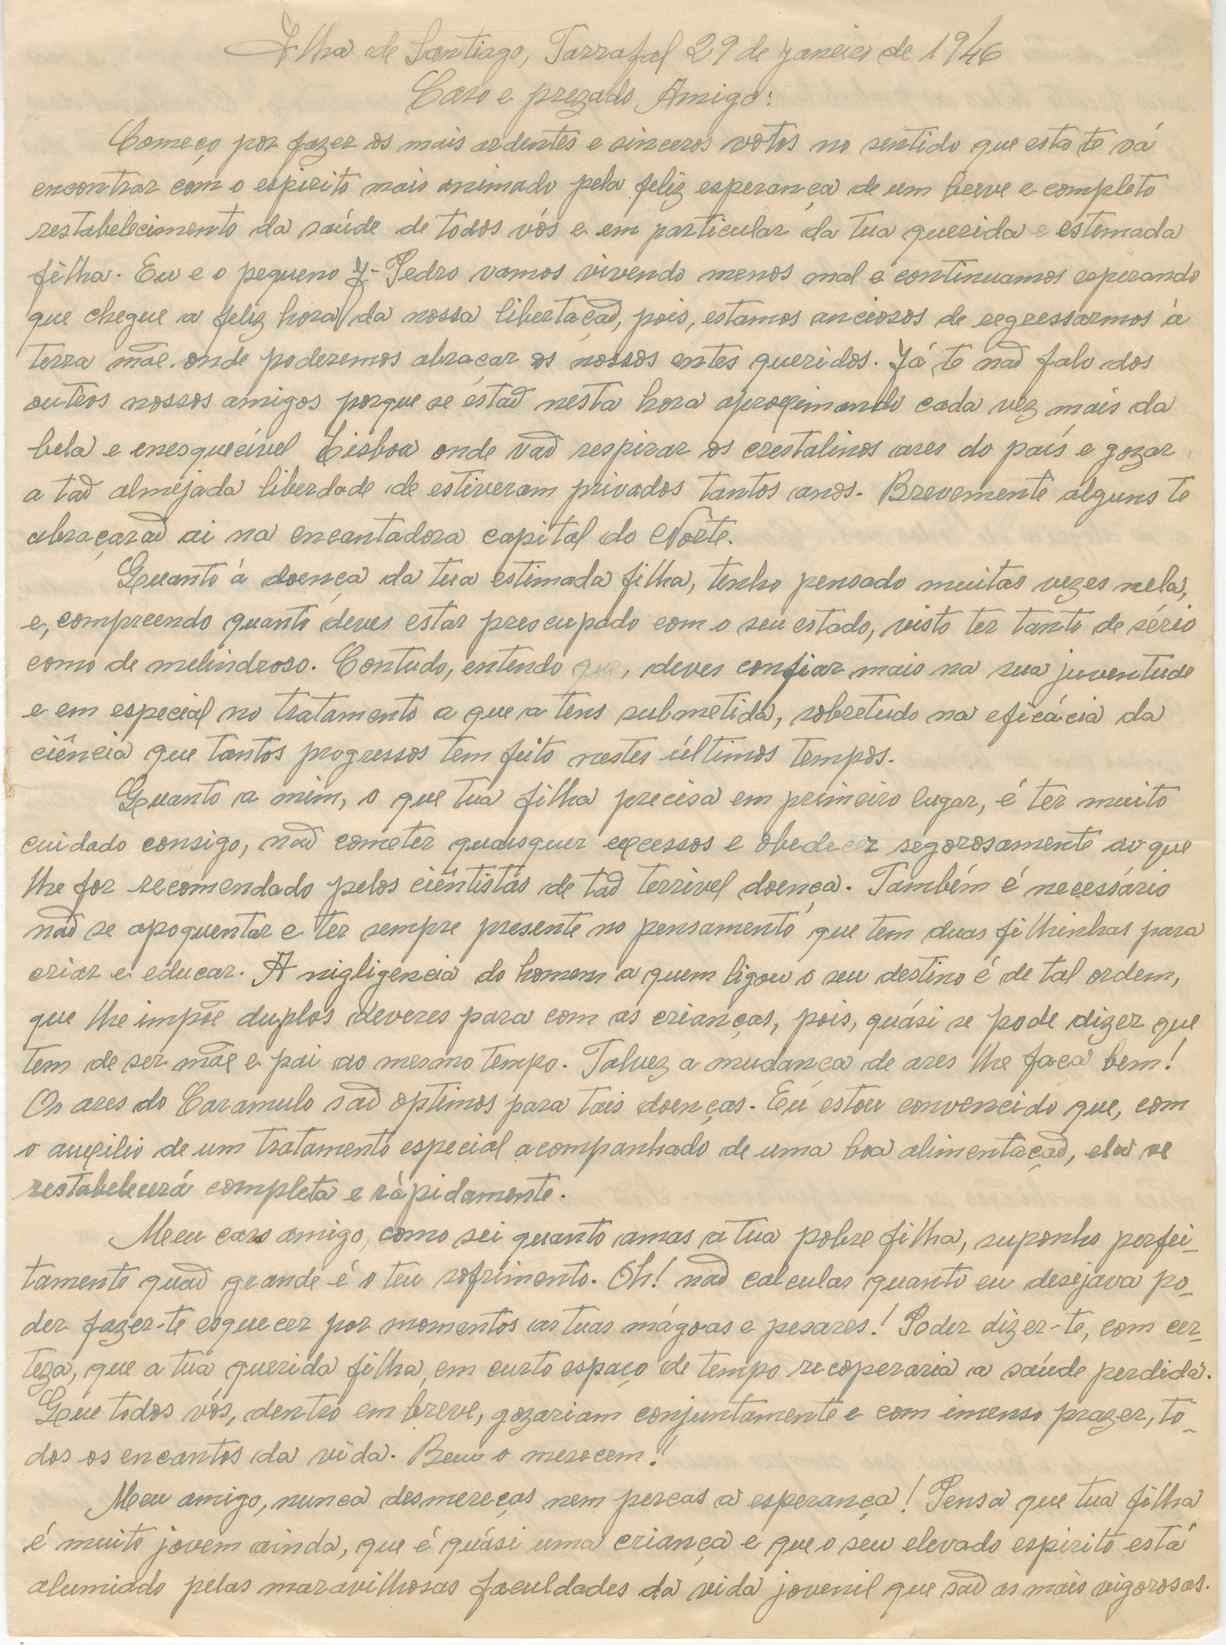 Ilha de Santiago, Tarrafal 29 de Janeiro de 1946
Caro e prezado Amigo:
Começo por fazer os mais ardentes e sinceros votos no sentido que esta te vá
encontrar com o espirito mais animado pela feliz esperança de um breve e completo
restabelecimento da saúde de todos vós e em particular da tua querida e estimada
filha. Eu e o pequeno J. Pedro vamos vivendo menos mal e continuamos esperando
que chegue a feliz hora da nossa libertação, pois, estamos anciosos de regressarmos á
terra mãe onde poderemos abraçar os nossos entes queridos. Já te não falo dos
outros nossos amigos porque se estão nesta hora aproximando cada vez mais da
bela e enesquecível Lisboa onde vão respirar os crestalinos ares do país e gozar
a tão almejada liberdade de estiveram privados tantos anos. Brevemente alguns te
abraçarão ai na encantadora capital do Norte.
Quanto á doença da tua estimada filha, tenho pensado muitas vezes nela,
e, compreendo quanto deves estar preocupado com o seu estado, visto ter tanto de sério
como de melindroso. Contudo, entendo que, deves confiar mais na sua juventude
e em especial no tratamento a que a tens submetida, sobretudo na eficácia da
ciência que tantos progressos tem feito nestes últimos tempos.
Quanto a mim, o que tua filha precisa em primeiro lugar, é ter muito
cuidado consigo, não cometer quaisquer excessos e obedecer regorosamente ao que
lhe for recomendado pelos ciêntistas de tão terrivel doença. Também é necessário
não se apoquentar e ter sempre presente no pensamento que tem duas filhinhas para
criar e educar. A nigligencia do homem a quem ligou o seu destino é de tal ordem,
que lhe impõe duplos deveres para com as crianças, pois, quási se pode dizer que
tem de ser mãe e pai ao mesmo tempo. Talvez a mudança de ares lhe faça bem!
Os ares do Caramulo são optimos para tais doenças. Eu estou convencido que, com
o auxilio de um tratamento especial acompanhado de uma boa alimentação, ela se
restabelecerá completa e ràpidamente.
Meu caro amigo, como sei quanto amas a tua pobre filha, suponho perfei-
tamente quão grande é o teu sofrimento. Oh! não calculas quanto eu desejava po-
der fazer-te esquecer por momentos as tuas mágoas e pesares! Poder dizer-te, com cer-
teza, que a tua querida filha em curto espaço de tempo recoperaria a saúde perdida.
Que todos vós, dentro em breve, gozariam conjuntamente e com imenso prazer, to-
dos os encantos da vida. Bem o merecem!
Meu amigo, nunca desmereças nem percas a esperança! Pensa que tua filha
é muito jovem ainda, que é quási uma criança e que o seu elevado espirito está
alumiado pelas maravilhosas faculdades da vida jovenil que são as mais vigorosas.